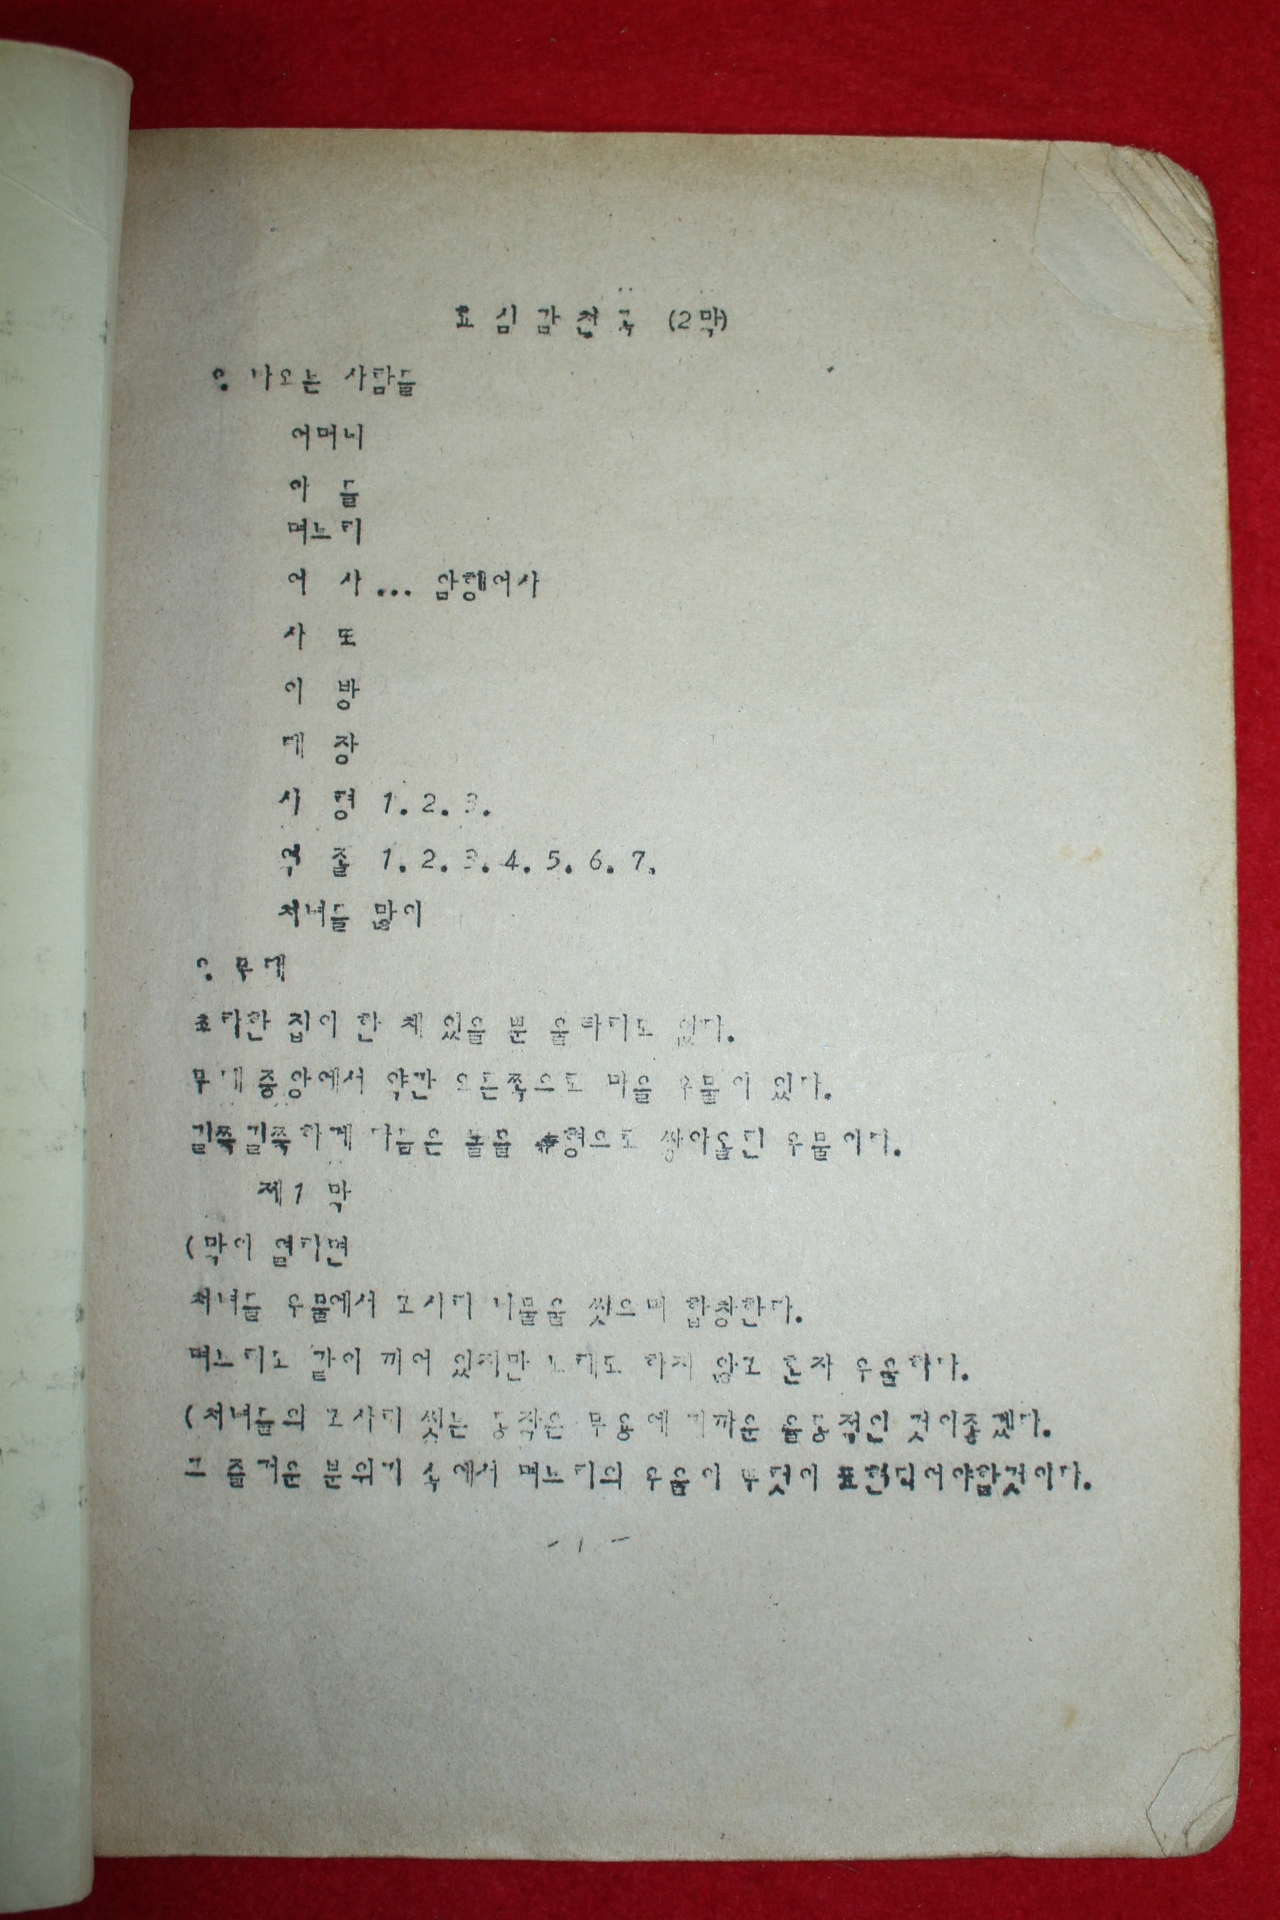 효 심 감 천 곡 (2막)
○. 나오는 사람들
어머니
아 들
며느리
어 사... 암행어사
사 또
이 방
대 장
사 령 1.2.3.
역 졸 1.2.3.4.5.6.7.
처녀들 많이
○. 무대
초라한 집이 한 채 있을 뿐 울타리도 없다.
무대 중앙에서 약간 오른쪽으로 마을 우물이 있다.
길쭉길쭉하게 다듬은 돌을 井형으로 쌓아올린 우물이다.
제1 막
(막이 열리면
처녀들 우물에서 고사리 나물을 씻으며 합창한다.
며느리도 같이 끼어 있지만 노래도 하지 않고 혼자 우울하다.
(처녀들의 고사리 씻는 동작은 무용에 가까운 율동적인 것이좋겠다.
그 즐거운 분위기 속에서 며느리의 우움이 뚜렷이 표현되어야할것이다.
- 1 -